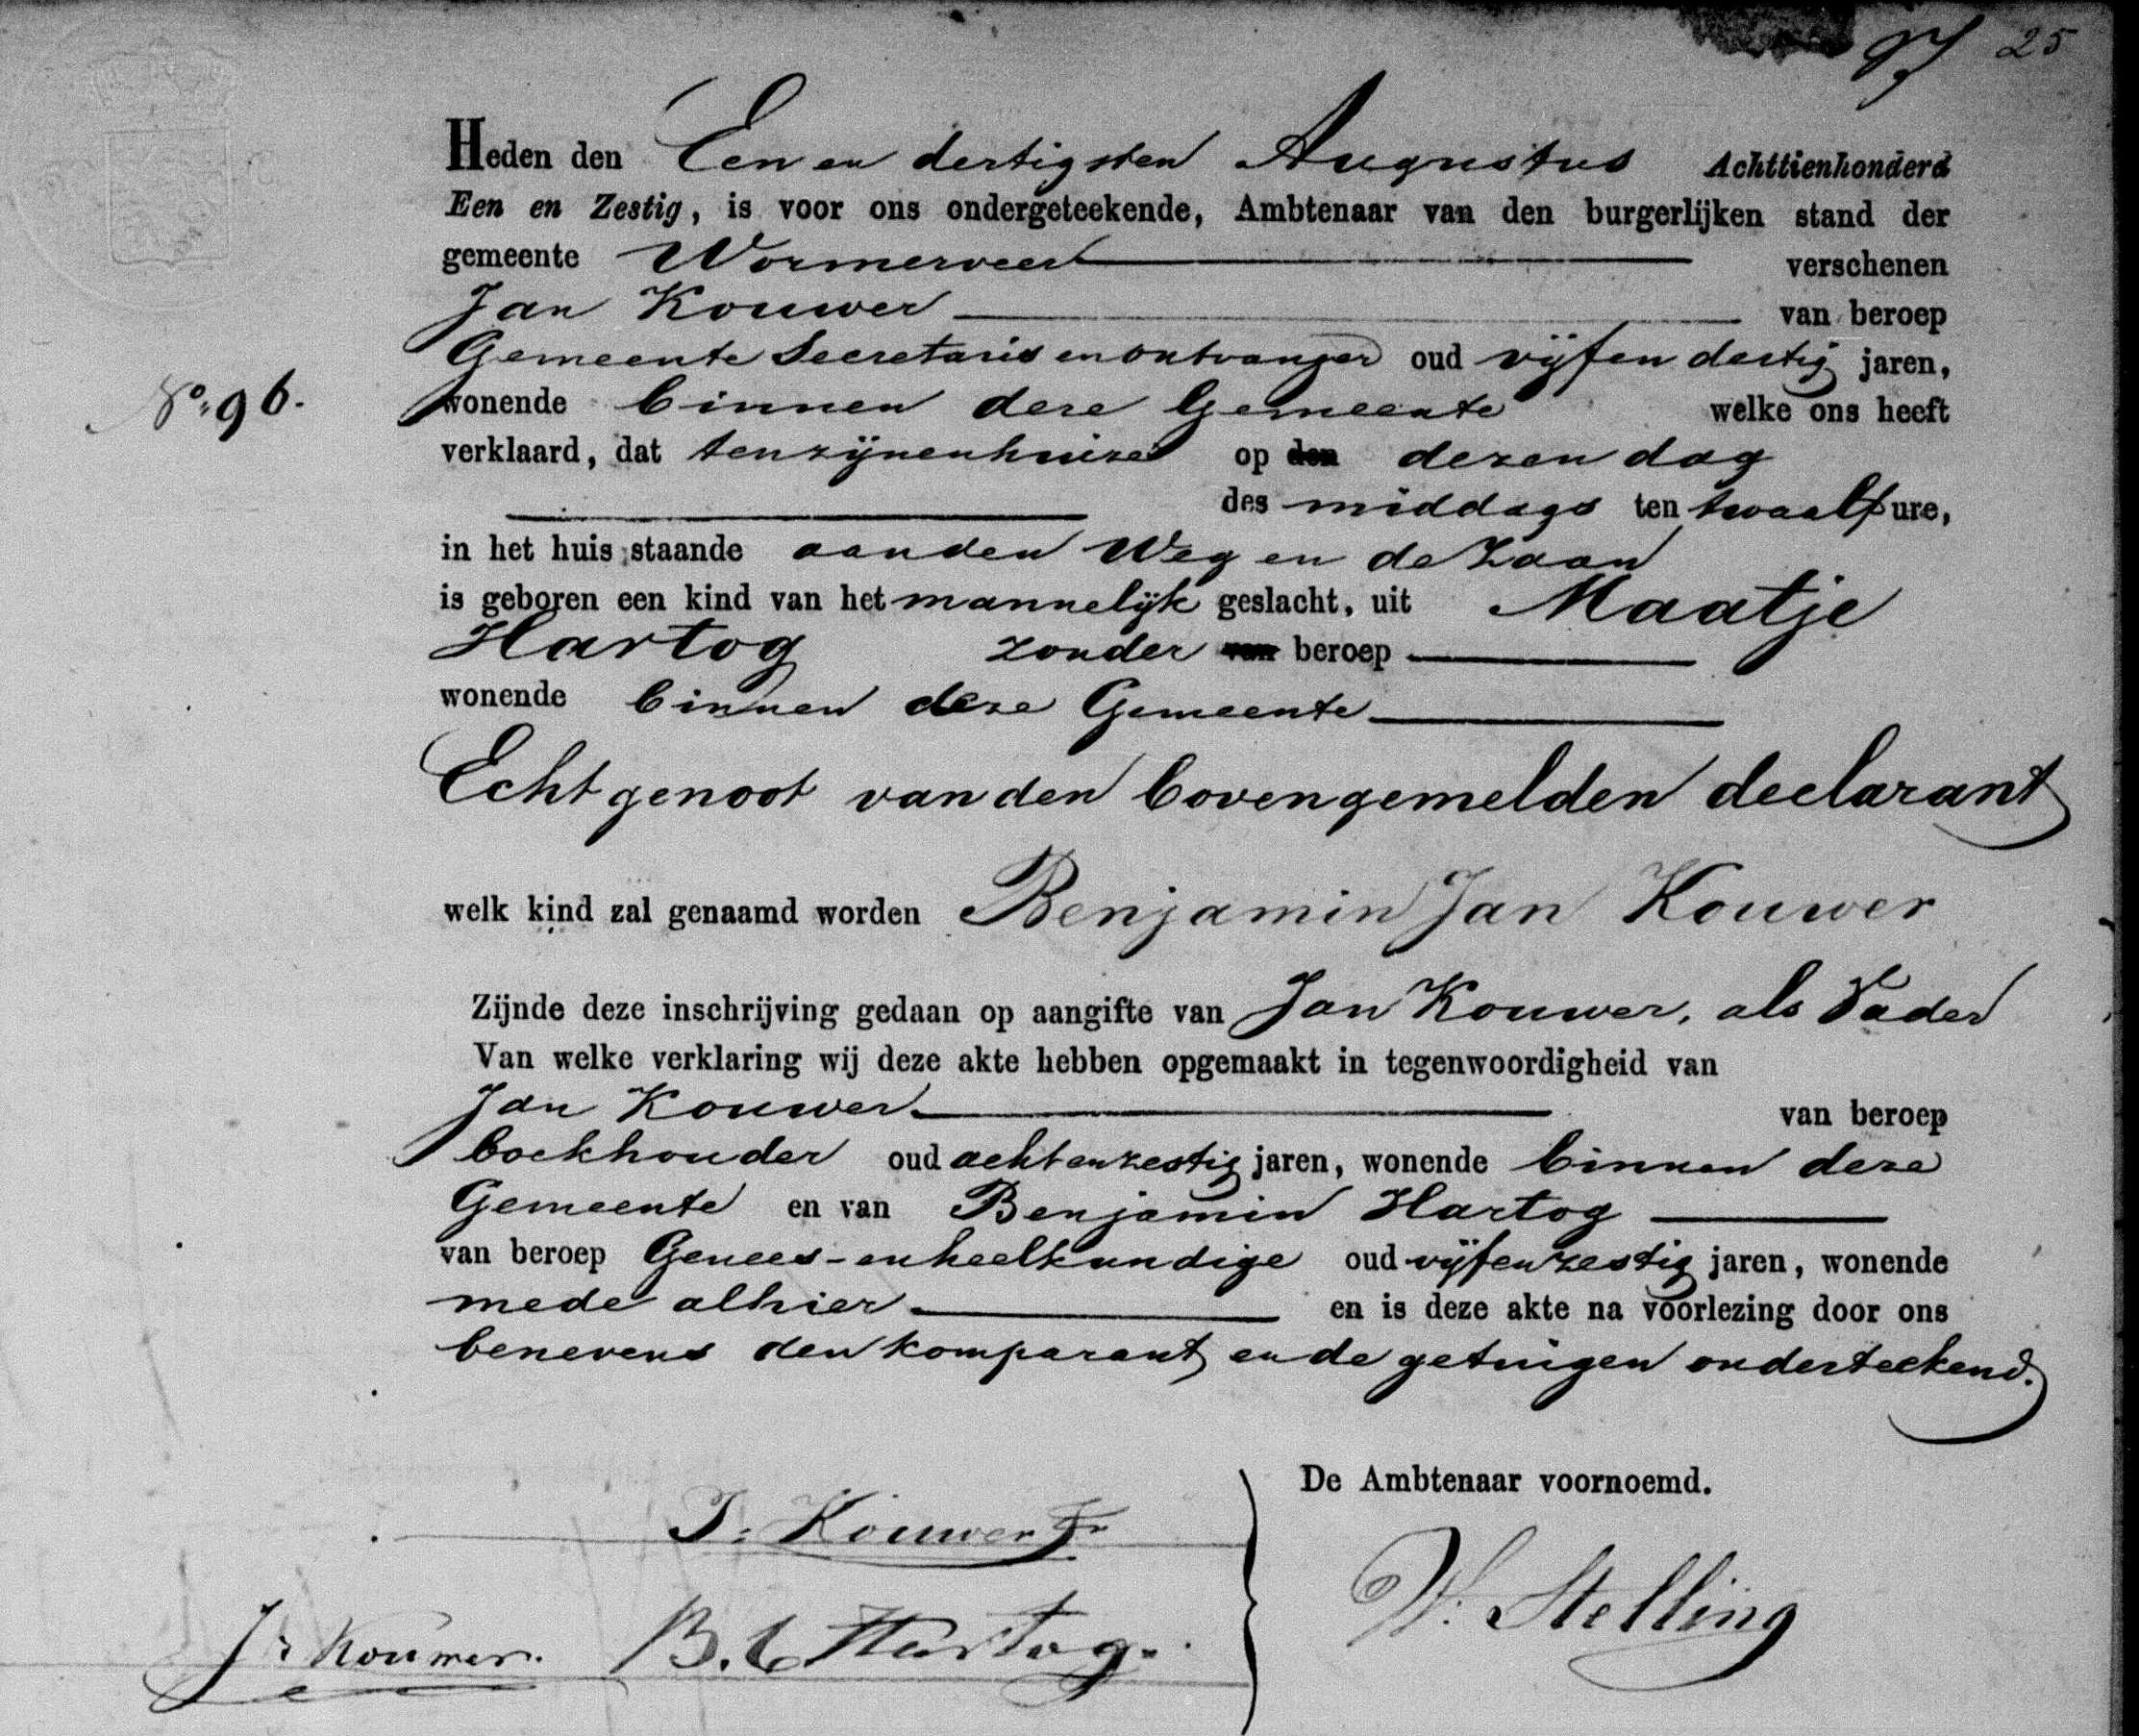 25
Heden den Een en dertigsten Augustus Achttienhonderd
Een en Zestig, is voor ons ondergeteekende, Ambtenaar van den burgerlijken stand der
gemeente Wormerveer verschenen
Jan Kouwer van beroep
Gemeente Secretaris en ontvanger oud vijf en dertig jaren,
No. 96.
wonende binnen deze Gemeente welke ons heeft
verklaard, dat tenzijnenhuize op den dezen dag
des middags ten twaalf ure,
in het huis staande aan den Weg en de Zaan
is geboren een kind van het mannelijk geslacht, uit Maatje
Hartog zonder van beroep
wonende binnen deze Gemeente
Echtgenoot van den bovengemelden declarant
welk kind zal genaamd worden Benjamin Jan Kouwer
Zijnde deze inschrijving gedaan op aangifte van Jan Kouwer, als Vader
Van welke verklaring wij deze akte hebben opgemaakt in tegenwoordigheid van
Jan Kouwer van beroep
boekhouder oud acht en zestig jaren, wonende binnen deze
Gemeente en van Benjamin Hartog
van beroep Genees- en heelkundige oud vijf en zestig jaren, wonende
mede alhier en is deze akte na voorlezing door ons
benevens den komparant en de getuigen onderteekend.
De Ambtenaar voornoemd.
J. Kouwer Jr
W. Stelling
Jn Kouwer. B. Hartog.